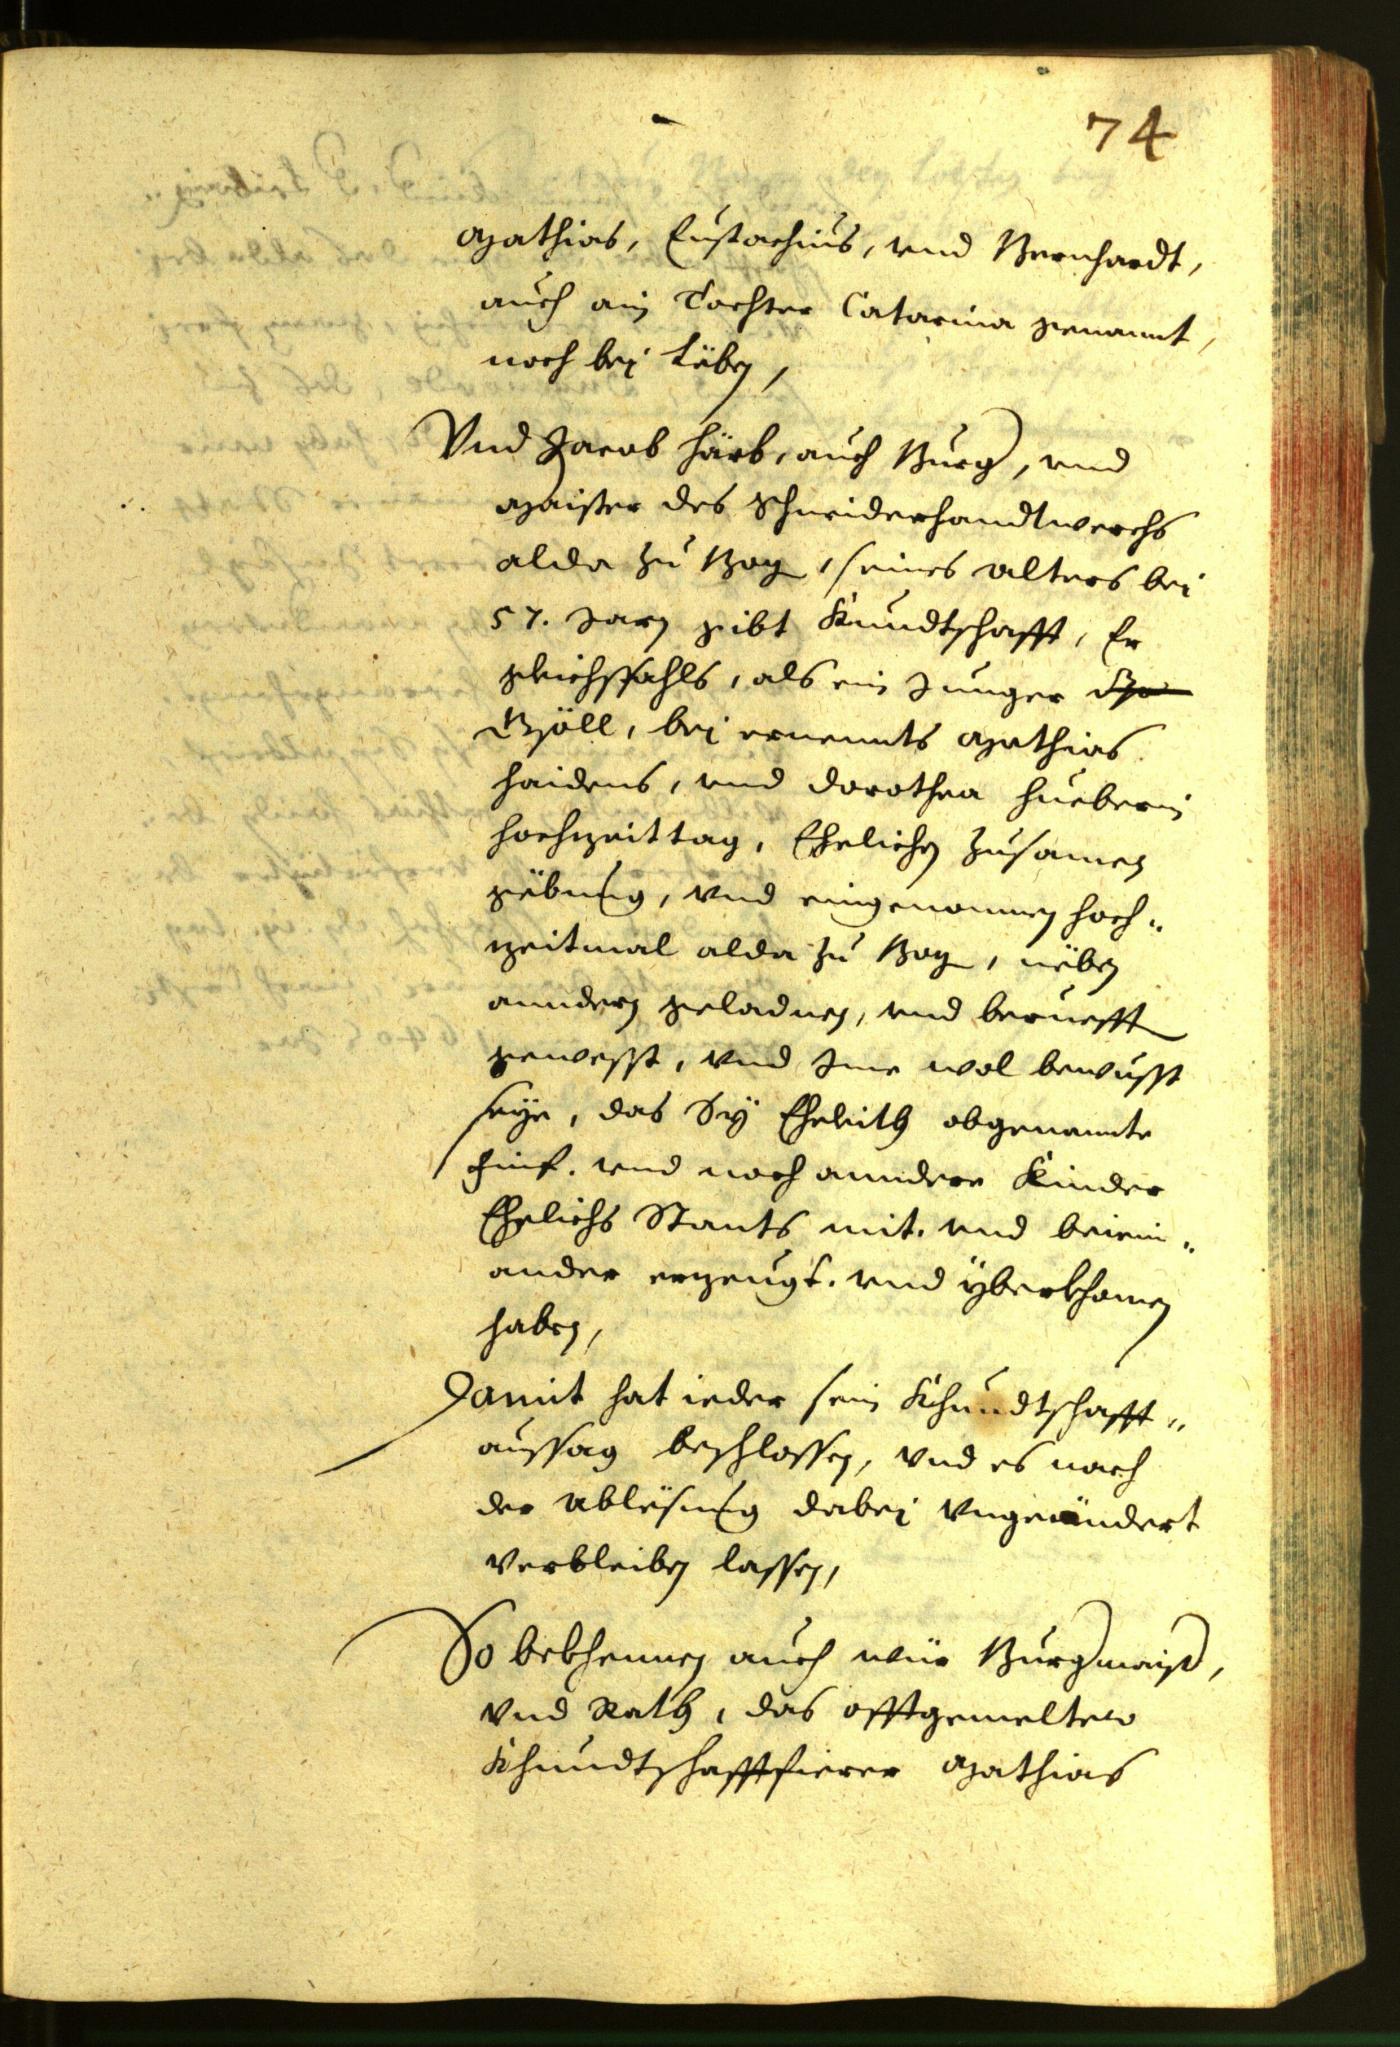 74
Mathias, Eustachius, vnd Bernhardt,
auch ain Tochter Catarina genannt,
noch bej Lëben,
Vnd Jacob Härb, auch Burg, vnd
Maister des Schneiderhandtwerchs
alda zu Bozn, seines alters bej
57. Jarn gibt Kundtschafft, Er
gleichsfahls, als ein Junger
Gsöll, bej ernennts Mathias
Haidens, vnd Dorothea Hueberin
Hochzeittag, Ehelichen zusamen
gëbung, vnd eingenomnen Hoch„
zeitmal alda zu Bozn, nëben
anndern geladnen, vnd beruefft
gewesst, vnd Ime wol bewusst
seye, das Sÿ Eheleith obgenannte
Finf. vnd noch anndere Kinder
Ehelichs Stants mit. vnd beiein„
ander erzeugt. vnd yberkhomen
haben,
Damit hat ieder sein Khundtschafft„
aussag beschlossen, vnd es nach
der Ablësung dabej Vngeändert
Verbleiben lassen,
So bekhennen auch wür Burgmaist,
Vnd Rath, das offtgemelter
Khundtschafftfierer Mathias